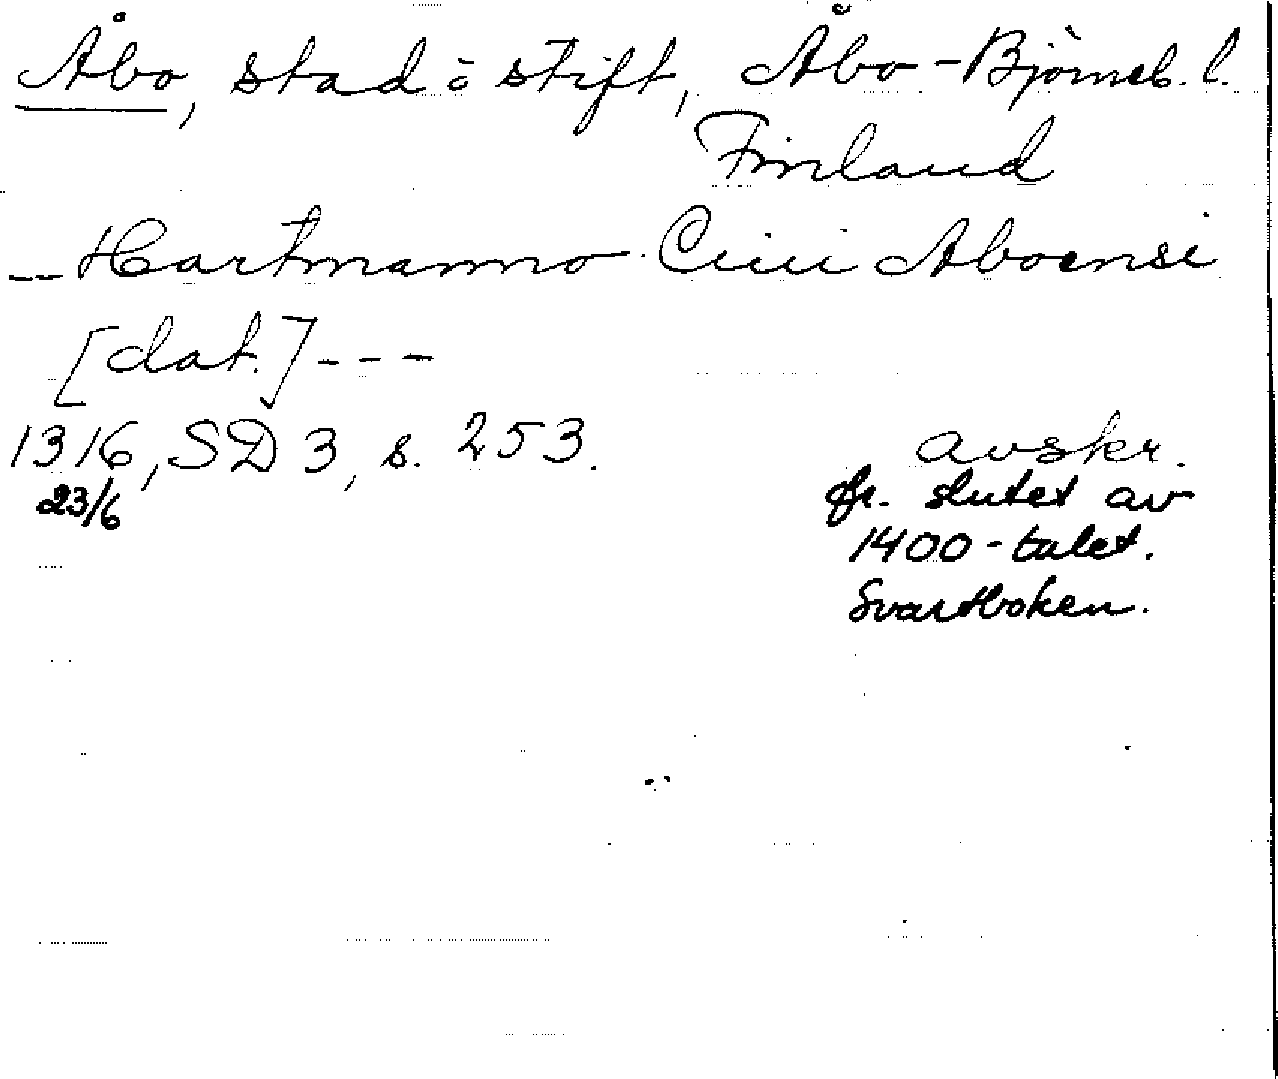 Åbo, stad o stift, Åbo-Björneb. l.
Finland
-- Hartmanno Ciui Aboensi
[dat.] - - -
1316, SD 3, s. 253. avskr.
23/6 fr. slutet av
1400-talet.
Svartboken.